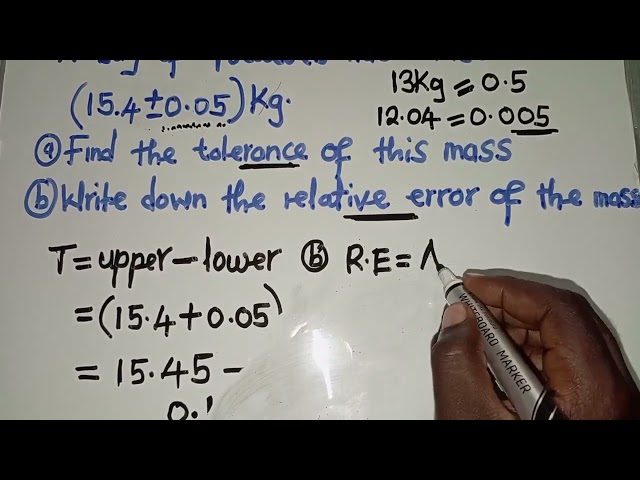 (15.4±0.05)Kg.
13Kg = 0.5
12.04 = 0.005
ⓐ Find the tolerance of this mass
ⓑ Write down the relative error of the mass
T = upper - lower
= (15.4+0.05)
= 15.45 -
0.1
ⓑ R.E =
WHITEBOARD MARKER